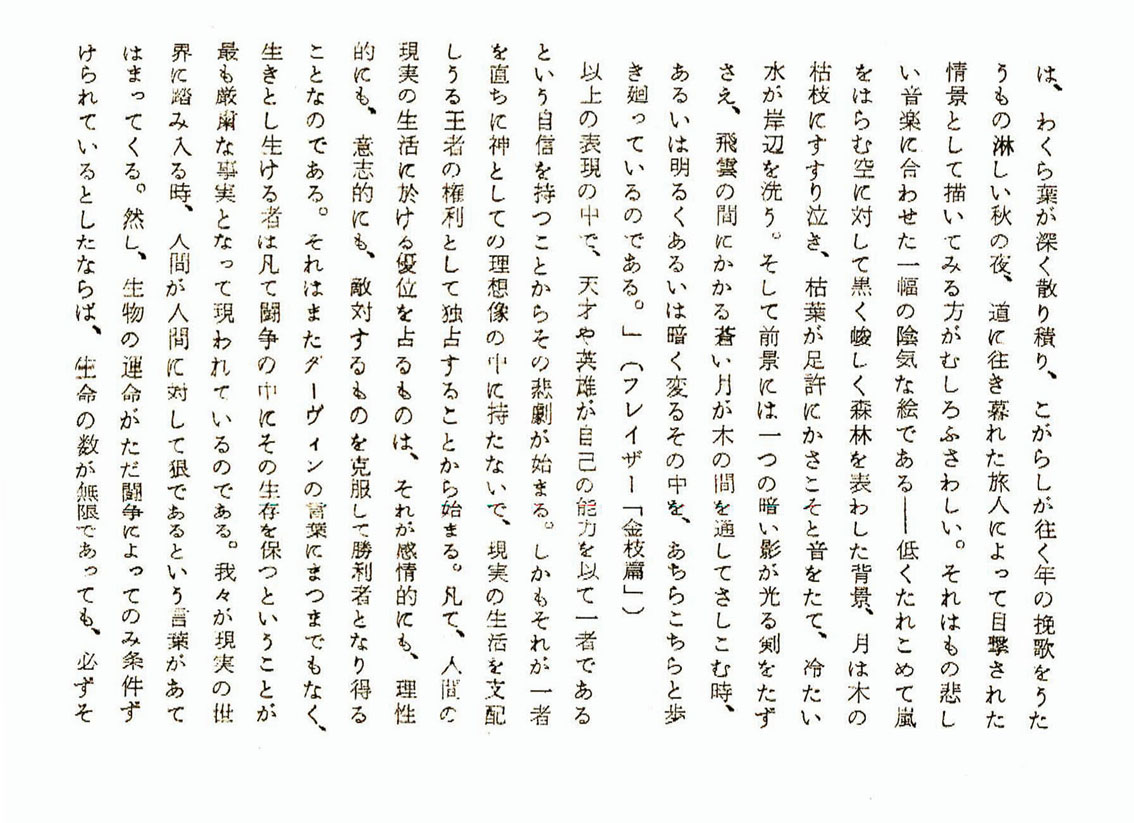 は、わくら葉が深く散り積り、こがらしが往く年の挽歌をうた
うもの淋しい秋の夜、道に往き暮れた旅人によって目撃された
情景として描いてみる方がむしろふさわしい。それはもの悲し
い音楽に合わせた一幅の陰気な絵である――低くたれこめて嵐
をはらむ空に対して黒く峻しく森林を表わした背景、月は木の
枯枝にすすり泣き、枯葉が足許にかさこそと音をたて、冷たい
水が岸辺を洗う。そして前景には一つの暗い影が光る剣をたず
さえ、飛雲の間にかかる蒼い月が木の間を通してさしこむ時、
あるいは明るくあるいは暗く変るその中を、あちらこちらと歩
き廻っているのである。」（フレイザー「金枝篇」）
以上の表現の中で、天才や英雄が自己の能力を以て一者である
という自信を持つことからその悲劇が始まる。しかもそれが一者
を直ちに神としての理想像の中に持たないで、現実の生活を支配
しうる王者の権利として独占することから始まる。凡て、人間の
現実の生活に於ける優位を占るものは、それが感情的にも、理性
的にも、意志的にも、敵対するものを克服して勝利者となり得る
ことなのである。それはまたダーヴィンの言葉にまつまでもなく、
生きとし生ける者は凡て闘争の中にその生存を保つということが
最も厳粛な事実となって現われているのである。我々が現実の世
界に踏み入る時、人間が人間に対して狼であるという言葉があて
はまってくる。然し、生物の運命がただ闘争によってのみ条件ず
けられているとしたならば、生命の数が無限であっても、必ずそ